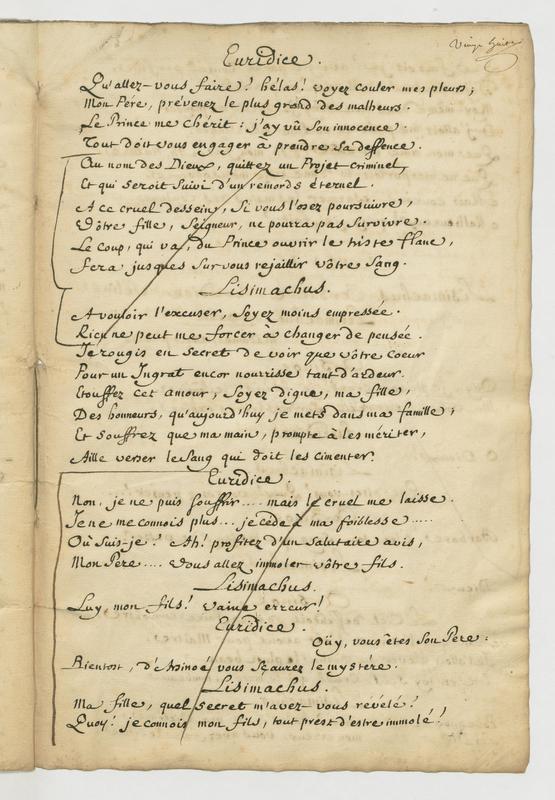 Vingt huit
Euridice.
Qu'allez-vous faire? hélas! voyez couler mes pleurs;
Mon Pére, prévenez le plus grand des malheurs.
Le Prince me chérit: j'ay vû son innocence.
Tout doit vous engager à prendre sa deffence.
Au nom des Dieux, quittez un Projet criminel,
Et qui seroit suivi d'un remords éternel.
A ce cruel dessein, Si vous l'osez poursuivre,
Vôtre fille, Seigneur, ne pourra pas survivre.
Le coup, qui va, du Prince ouvrir le triste flanc,
fera jusques sur vous rejaillir vôtre sang.
Lisimachus.
A vouloir l'excuser, soyez moins empressée.
Rien ne peut me forcer à changer de pensée.
Je rougis en secret de voir que vôtre coeur
Pour un Ingrat encor nourrisse tant d'ardeur.
Etouffez cet amour, soyez digne, ma fille,
Des honneurs, qu'aujourd'huy je mets dans ma famille;
Et souffrez que ma main, prompte à les mériter,
Aille verser le sang qui doit les cimenter.
Euridice.
Non, je ne puis souffrir.... mais le cruel me laisse.
Je ne me connois plus... je cède à ma foiblesse.....
Où suis-je? Ah! profitez d'un salutaire avis,
Mon Pere.... vous allez immoler vôtre fils.
Lisimachus.
Luy, mon fils! vaine erreur!
Euridice.
Oüy, vous êtes son Pere:
Bientost, d'Arsinoé vous sçaurez le mystére.
Lisimachus.
Ma fille, quel secret m'avez-vous révélé?
Quoy! je connois mon fils, tout prest d'estre immolé!